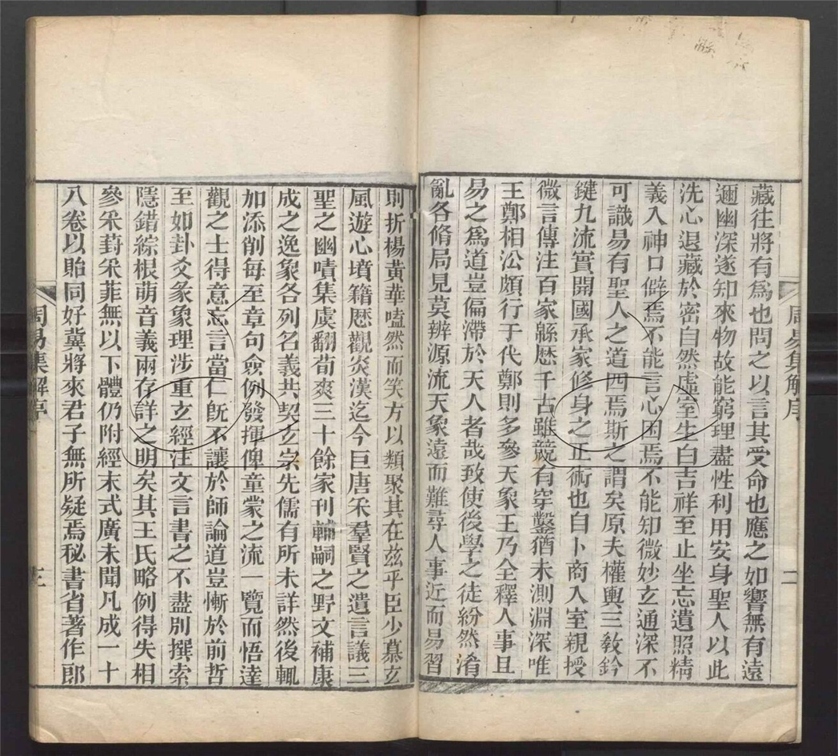 藏往將有爲也問之以言其受命也應之如響無有遠
邇幽深遂知來物故能窮理盡性利用安身聖人以此
洗心退藏於密自然虛室生白吉祥至止坐忘遺照精
義入神口僻焉不能言心困焉不能知微妙玄通深不
可識易有聖人之道四焉斯之謂矣原夫權輿三敎鈐
鍵九流實開國承家修身之正術也自卜商入室親授
微言傳注百家緜歴千古雖競有穿鑿猶未測淵深唯
王鄭相沿頗行于代鄭則多參天象王乃全釋人事且
易之爲道豈偏滯於天人者哉致使後學之徒紛然淆
亂各脩局見莫辨源流天象遠而難尋人事近而易習
周易集解序
二
則折楊黃華嗑然而笑方以類聚其在茲乎臣少慕玄
風遊心墳籍歴觀炎漢迄今巨唐采羣賢之遺言議三
聖之幽賾集虞翻荀爽三十餘家刊輔嗣之野文補康
成之逸象各列名義共契玄宗先儒有所未詳然後輒
加添削每至章句僉例發揮俾童蒙之流一覽而悟達
觀之士得意忘言當仁旣不讓於師論道豈慚於前哲
至如卦爻彖象理涉重玄經注文言書之不盡別撰索
隱錯綜根萌音義兩存詳之明矣其王氏略例得失相
參采葑采菲無以下體仍附經末式廣未聞凡成一十
八卷以貽同好冀將來君子無所疑焉秘書省著作郎
周易集解序
三